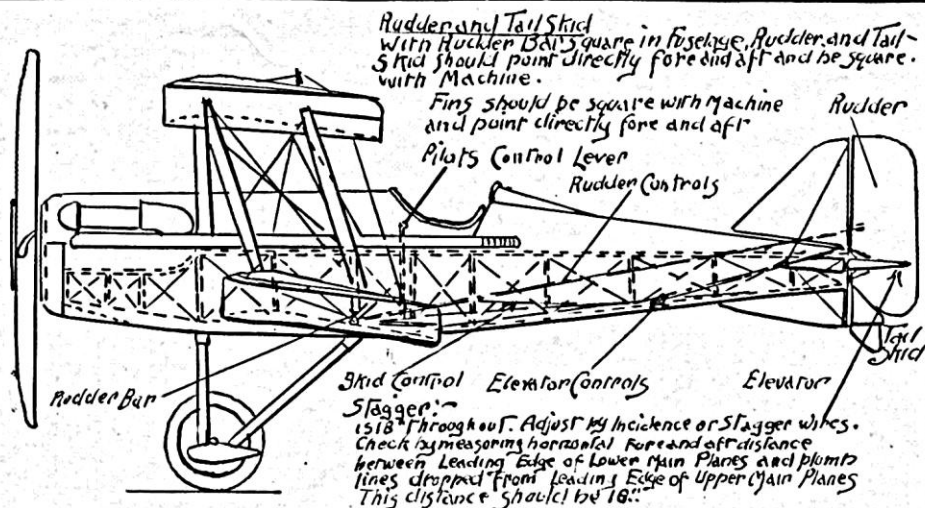 Rudder and Tail Skid
With Rudder Bar Square in Fuselage, Rudder and Tail-
Skid should point directly fore and aft and be square.
with Machine.
Fins should be square with Machine
and point directly fore and aft
Rudder
Pilots Control Lever
Rudder Controls
Tail
Skid
Rudder Bar
Skid Control
Elevator Controls
Elevator
Stagger:-
is 18" Throughout. Adjust by Incidence or Stagger wires.
Check by measuring horizontal Fore and aft distance
between Leading Edge of Lower Main Planes and plumb
lines dropped from Leading Edge of Upper Main Planes
This distance should be 18".